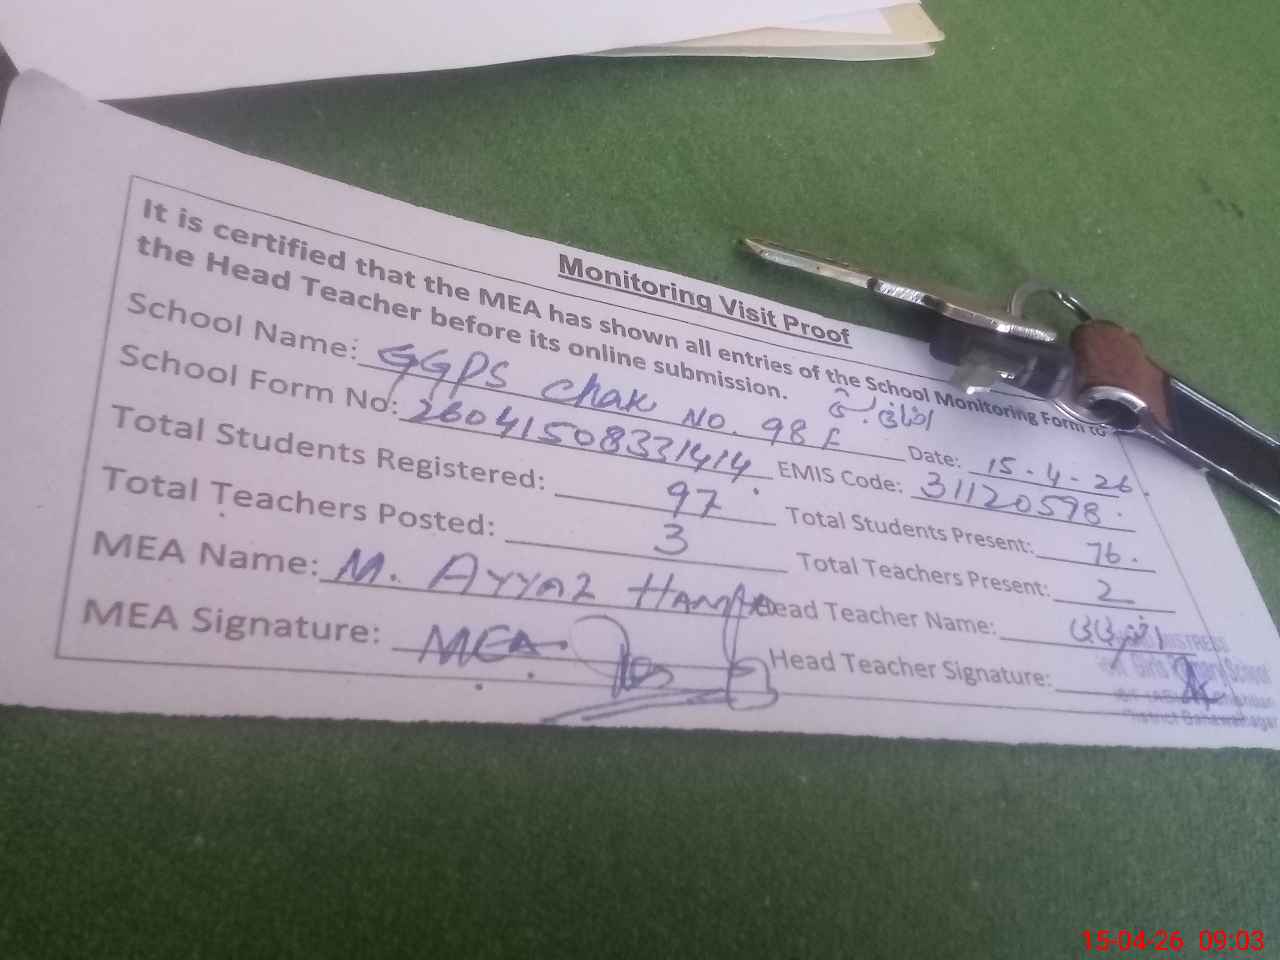 Monitoring Visit Proof
It is certified that the MEA has shown all entries of the School Monitoring Form to
the Head Teacher before its online submission.
School Name: GGPS Chak No. 98 F Date: 15-4-26
School Form No: 26041508331414 EMIS Code: 31120598
Total Students Registered: 97 Total Students Present: 76
Total Teachers Posted: 3 Total Teachers Present: 2
MEA Name: M. Ayyaz Head Teacher Name:
MEA Signature: MEA Head Teacher Signature:
15-04-26 09:03